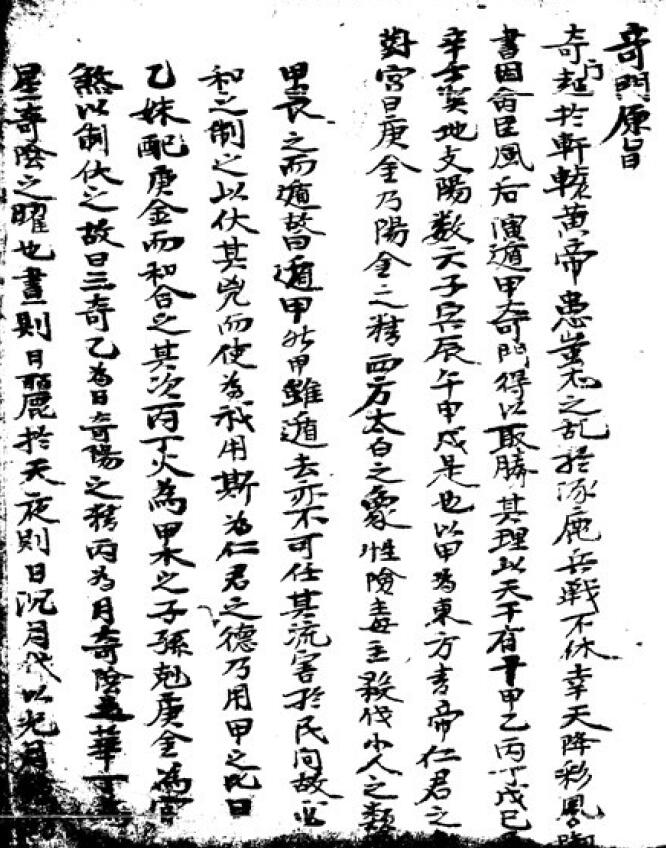 奇門原旨
奇門起於軒轅黃帝患蚩尤之乱於涿鹿兵戰不休幸天降彩鳳
書因命臣風后演遁甲奇門得以取勝其理以天干有十甲乙丙丁戊巳
辛壬癸地支陽数六子寅辰午申戌是也以甲為東方青帝仁君之
對宮曰庚金乃陽金之精西方太白之象性險毒主殺伐小人之類
甲畏之而遁故曰遁甲然甲雖遁去亦不可任其流害於民间故必
和之制之以伏其兇而使為我用斯為仁君之德乃用甲之
乙妹配庚金而和合之其次丙丁火為甲木之子孫剋庚金為官
煞以制伏之故曰三奇乙為日奇陽之精丙為月奇陰之華丁
星奇陰之曜也晝則日麗於天夜則日沉月代以光月